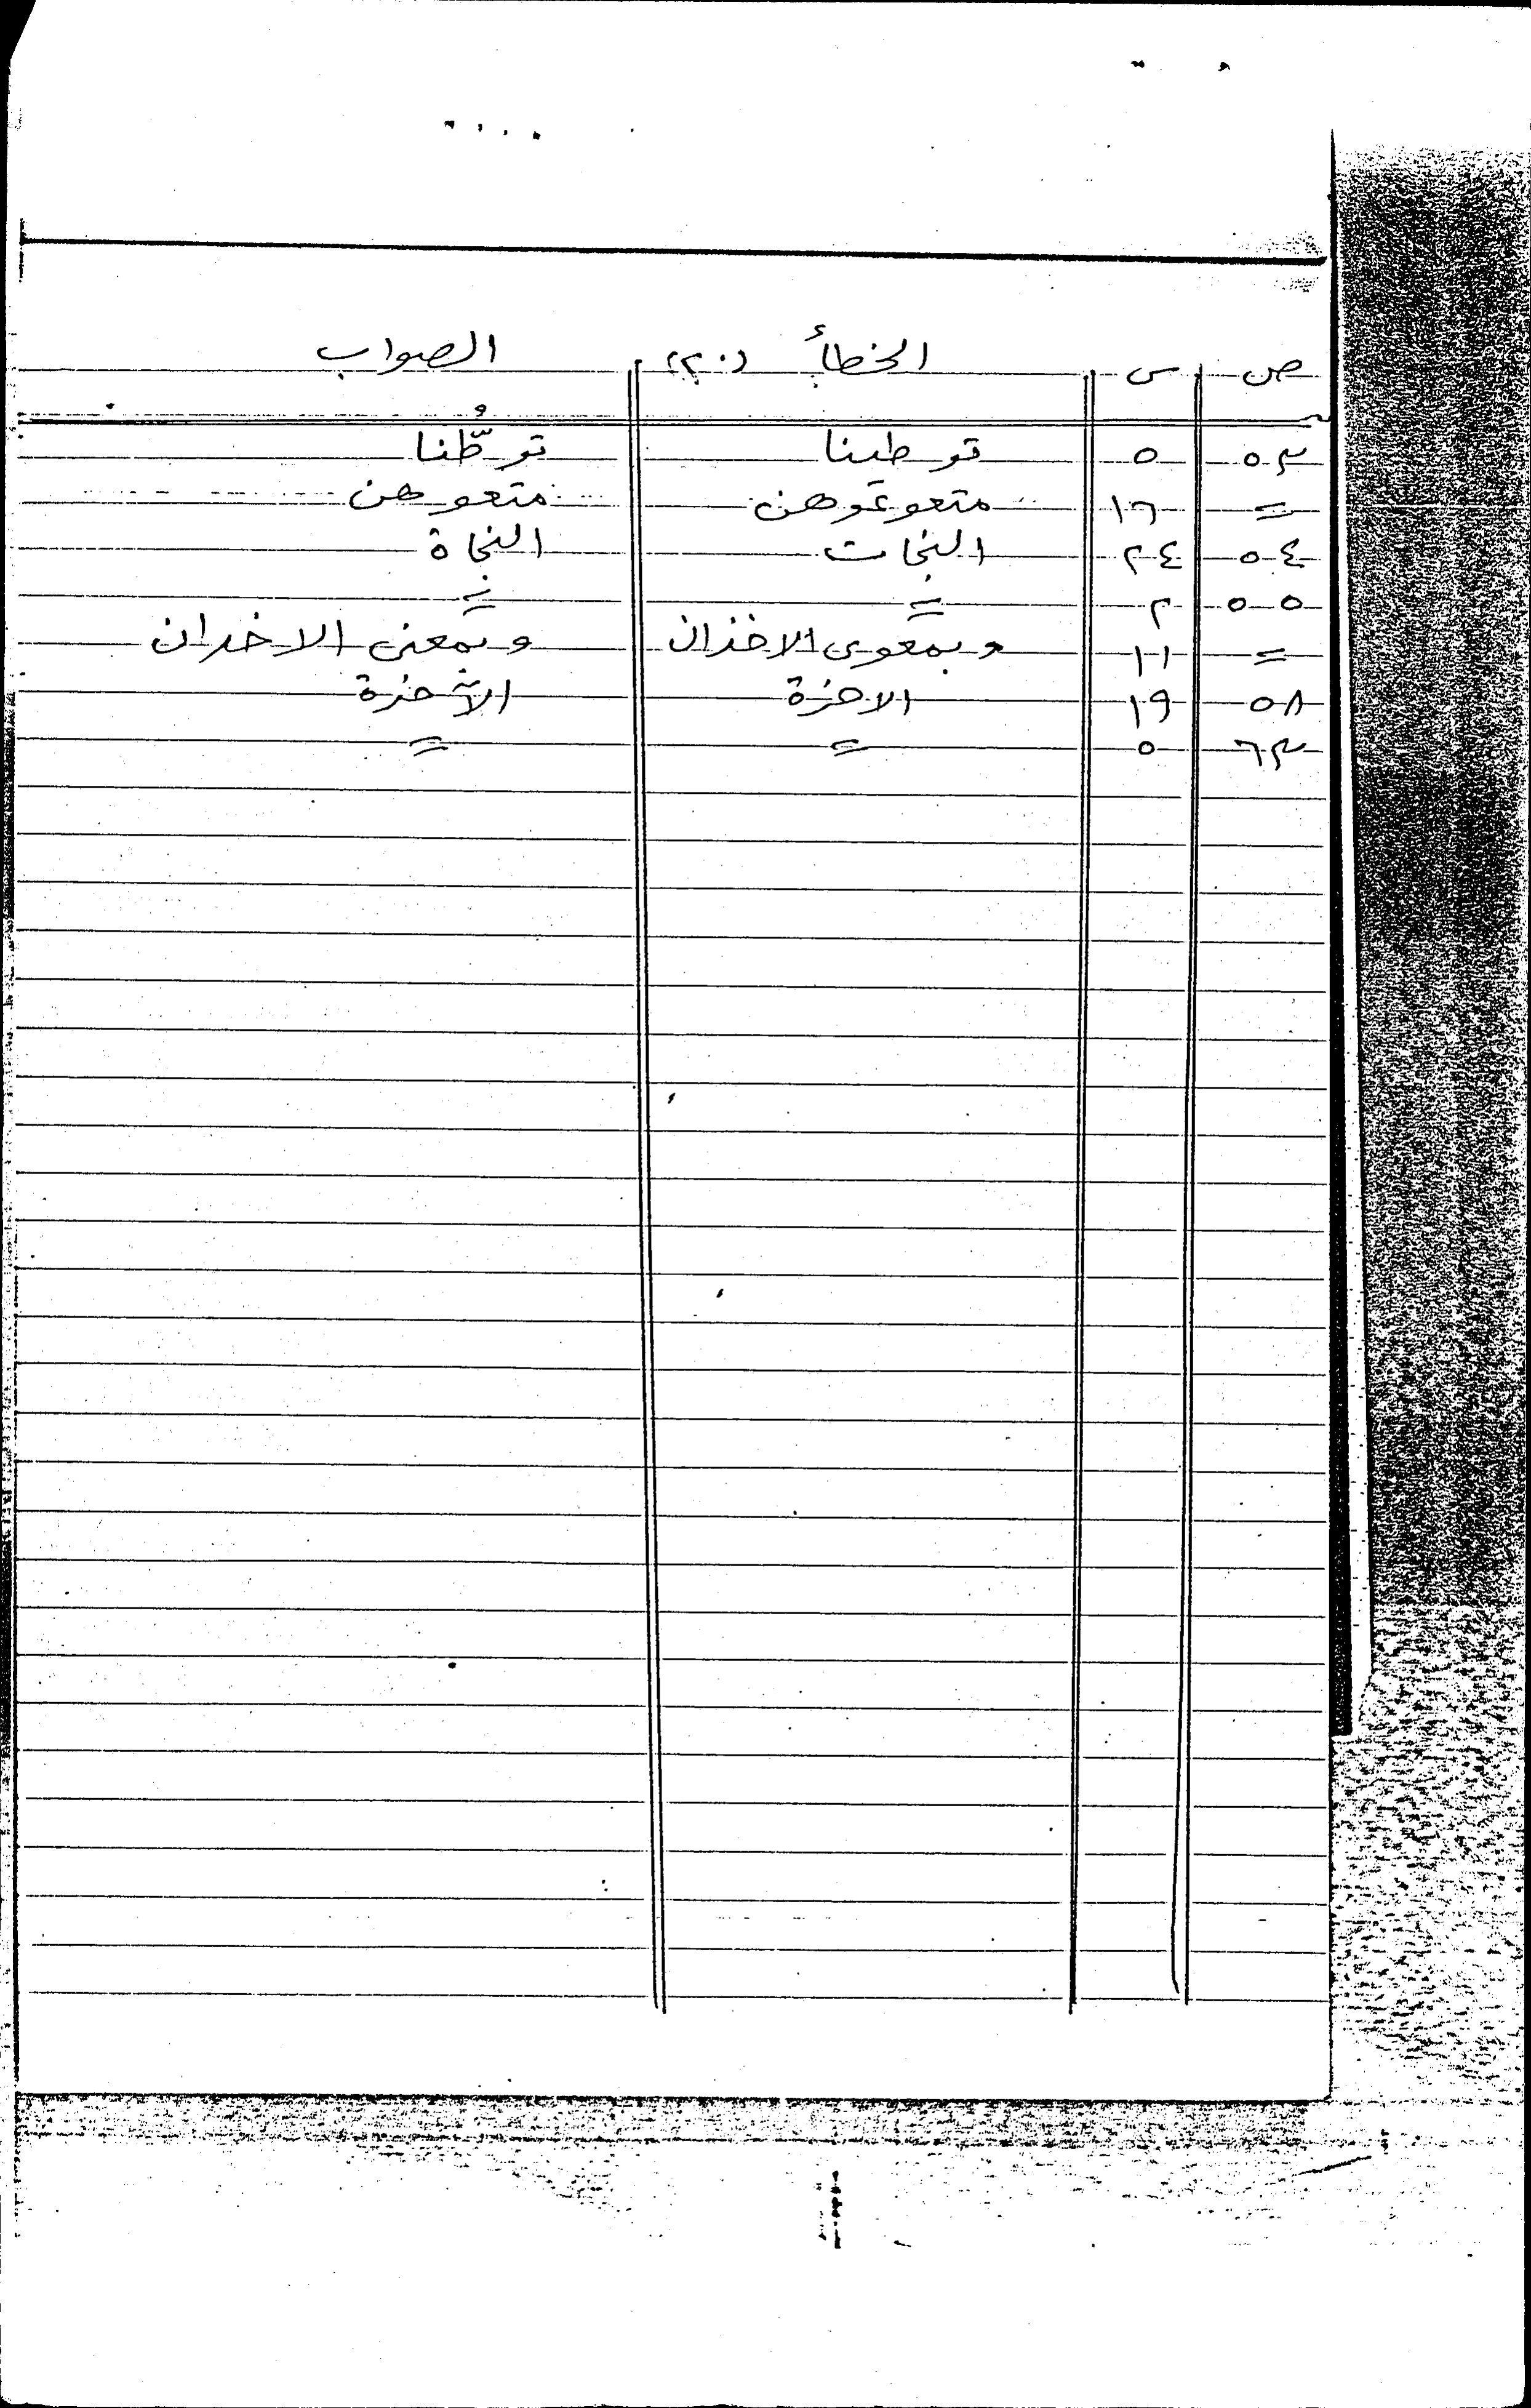 ص س الخطأ (٢٠) الصواب
٥٣ ٥ توطينا توطّنا
= ١٦ متعوعوهن متعوهن
٥٤ ٢٤ النجات النجاة
٥٥ ٢ = =
= ١١ وبمعوى الاخذان وبمعنى الاخدان
٥٨ ١٩ الاخرة الآخرة
٦٣ ٥ = =